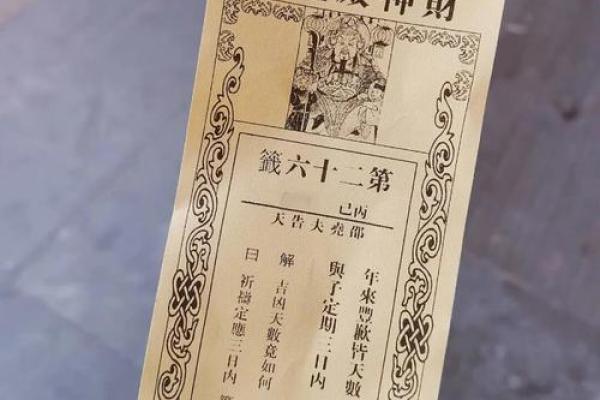 財神殿
第二十六籤
丙己
邵堯夫告天
年來豐歉皆天數
與子定期三日內
解 吉凶天數竟如何
曰 祈禱定應三日內